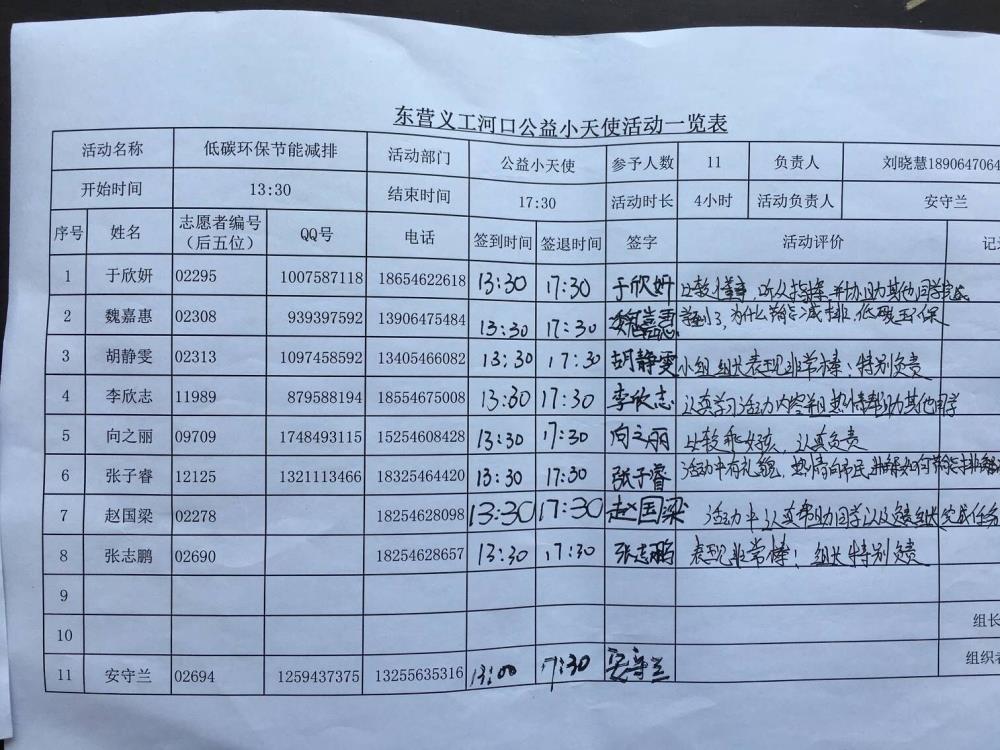 东营义工河口公益小天使活动一览表
活动名称 低碳环保节能减排 活动部门 公益小天使 参予人数 11 负责人 刘晓慧1890647064
开始时间 13:30 结束时间 17:30 活动时长 4小时 活动负责人 安守兰
序号 姓名 志愿者编号（后五位） QQ号 电话 签到时间 签退时间 签字 活动评价 记
1 于欣妍 02295 1007587118 18654622618 13:30 17:30 于欣妍 比较懂事，听从指挥，并协助其他同学完成
2 魏嘉惠 02308 939397592 13906475484 13:30 17:30 学到了，为什么节能减排，低碳环保
3 胡静雯 02313 1097458592 13405466082 13:30 17:30 胡静雯 小组组长表现非常棒；特别负责
4 李欣志 11989 879588194 18554675008 13:30 17:30 李欣志 认真学习活动内容并且热情帮助其他同学
5 向之丽 09709 1748493115 15254608428 13:30 17:30 向之丽 比较乖好孩，认真负责
6 张子睿 12125 1321113466 18325464420 13:30 17:30 张子睿 活动中有礼貌，热情向市民讲解如何节能排
7 赵国梁 02278 18254628098 13:30 17:30 赵国梁 活动中认真帮助同学以及组长完成任务
8 张志鹏 02690 18254628657 13:30 17:30 张志鹏 表现非常棒；组长特别负责
9
10 组长
11 安守兰 02694 1259437375 13255635316 13:00 17:30 安守兰 组织者